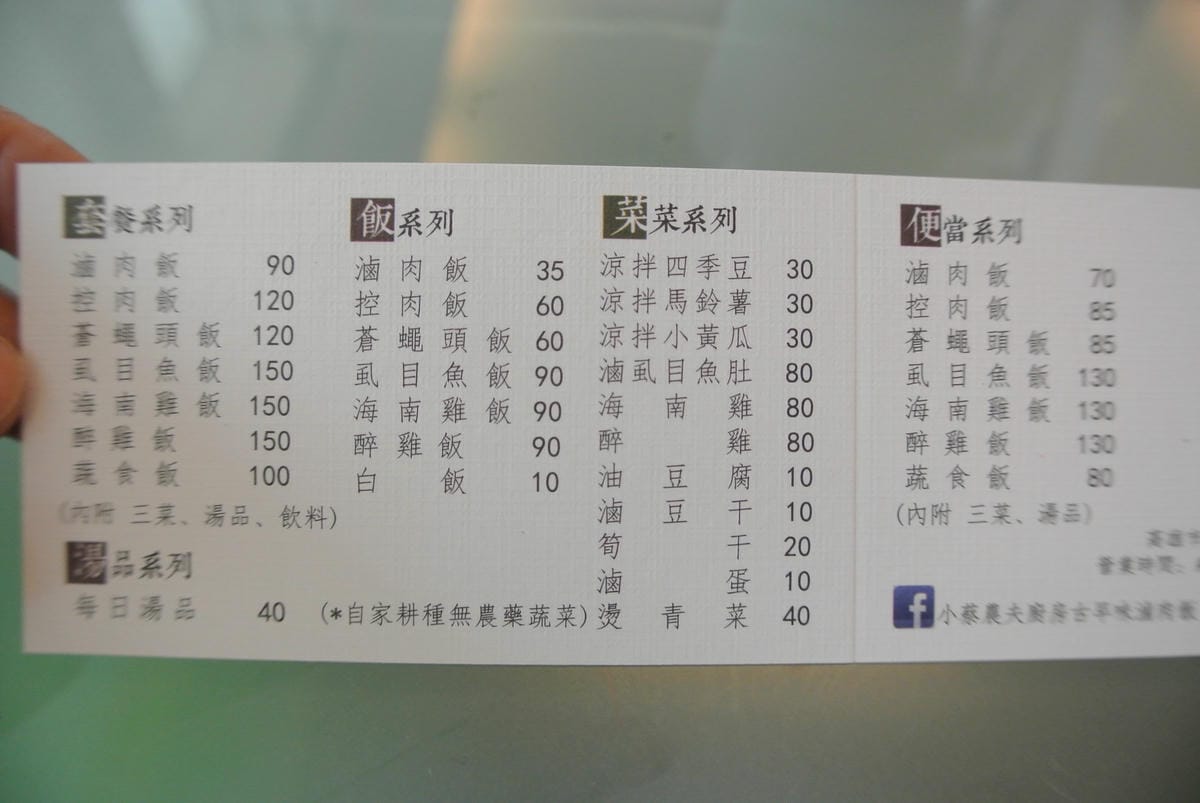 套餐系列
滷肉飯 90
控肉飯 120
蒼蠅頭飯 120
虱目魚飯 150
海南雞飯 150
醉雞飯 150
蔬食飯 100
(內附 三菜、湯品、飲料)
湯品系列
每日湯品 40
飯系列
滷肉飯 35
控肉飯 60
蒼蠅頭飯 60
虱目魚飯 90
海南雞飯 90
醉雞飯 90
白飯 10
(*自家耕種無農藥蔬菜)
菜菜系列
涼拌四季豆 30
涼拌馬鈴薯 30
涼拌小黃瓜 30
滷虱目魚肚 80
海南雞 80
醉雞 80
油豆腐 10
滷豆干 10
筍干 20
滷蛋 10
燙青菜 40
便當系列
滷肉飯 70
控肉飯 85
蒼蠅頭飯 85
虱目魚飯 130
海南雞飯 130
醉雞飯 130
蔬食飯 80
(內附 三菜、湯品)
高雄市
營業時間:
f 小蔡農夫廚房古早味滷肉飯